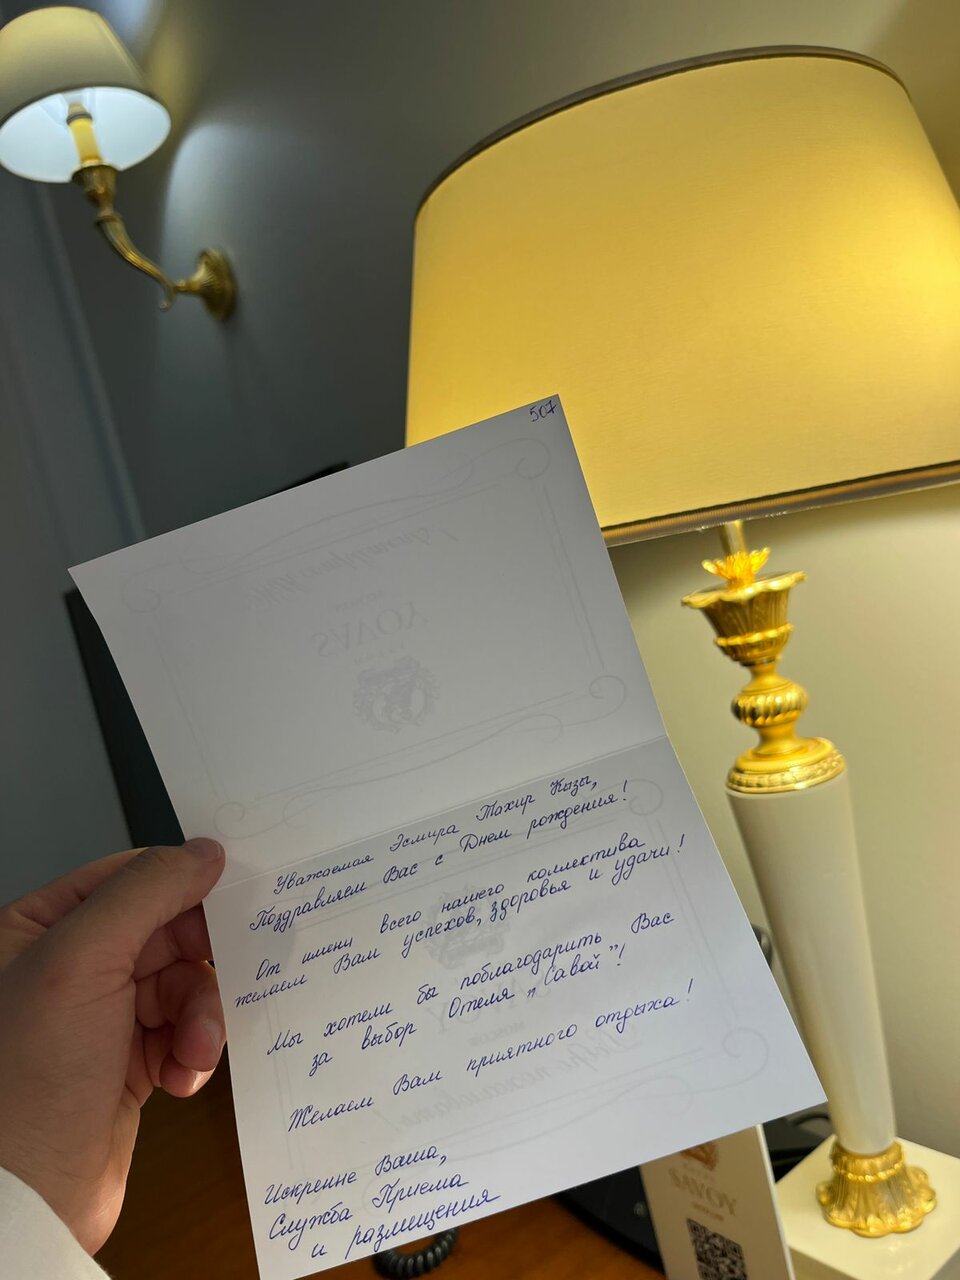 507
SAVOY
Уважаемая Эсмира Тахир Кызы,
Поздравляем Вас с Днем рождения!
От имени всего нашего коллектива
желаем Вам успехов, здоровья и удачи!
Мы хотели бы поблагодарить Вас
за выбор Отеля „Савой"!
Желаем Вам приятного отдыха!
Искренне Ваша,
Служба Приема
и размещения
SAVOY
MOSCOW
SAVOY